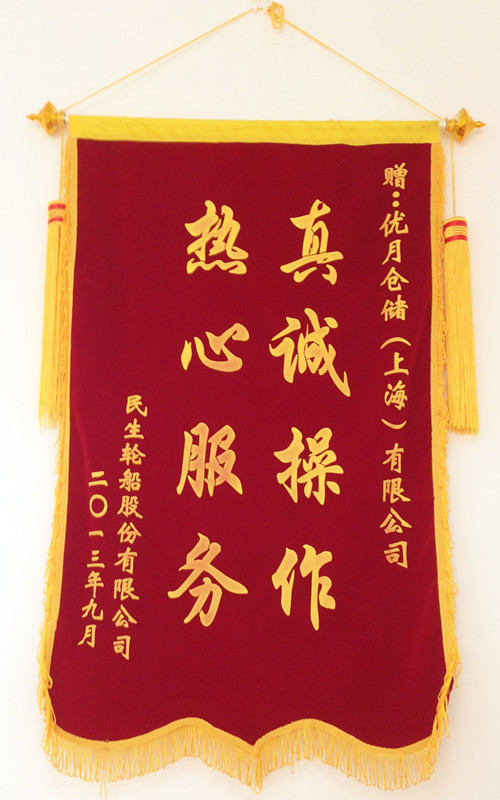 赠:优月仓储(上海)有限公司
真诚操作
热心服务
民生轮船股份有限公司
二〇一三年九月